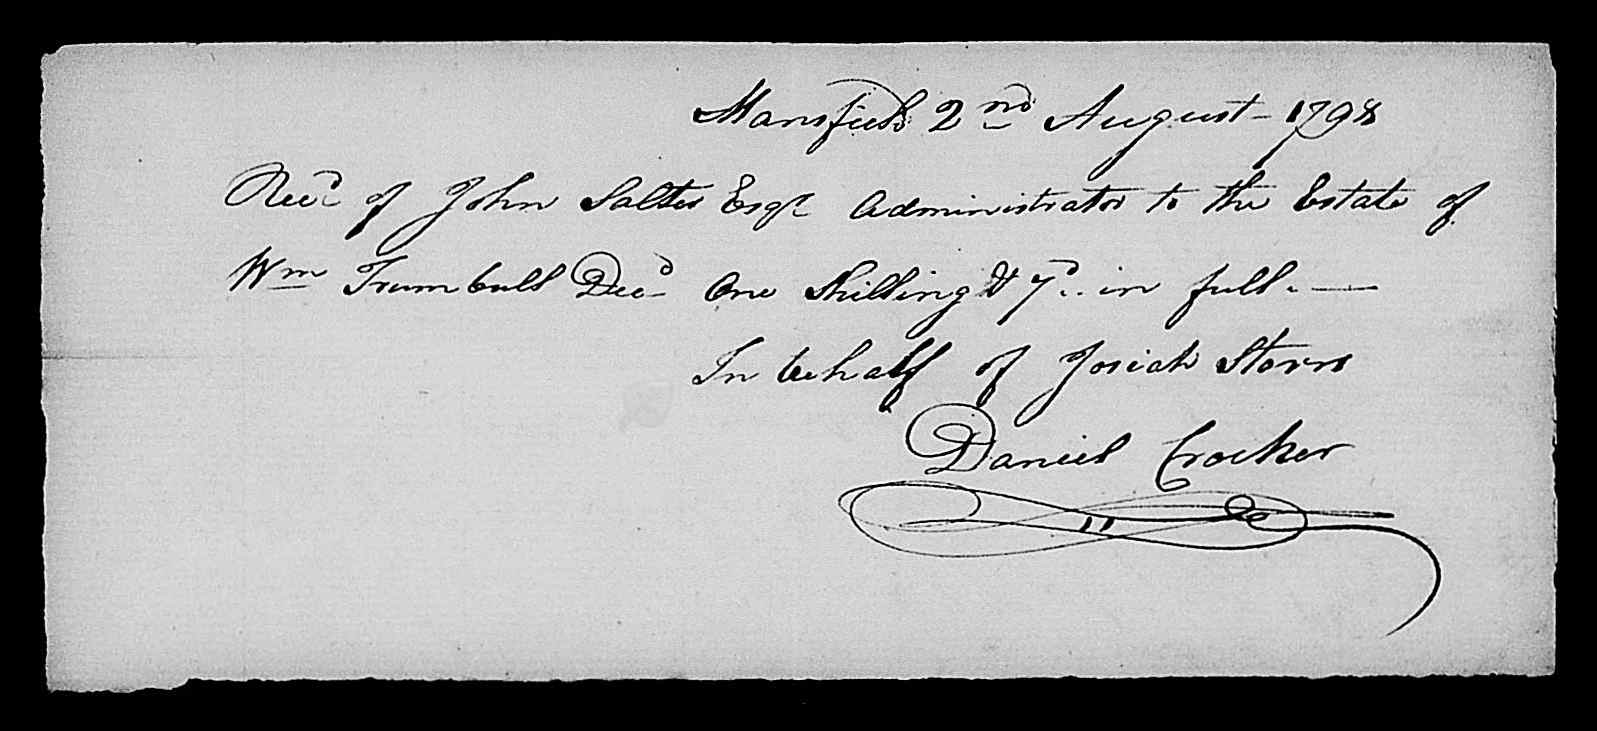 Mansfield 2nd August - 1798
Recd of John Salter Esqr Administrator to the Estate of
Wm Trumbull Decd One Shilling & 7d. in full. —
In behalf of Josiah Storrs
Daniel Crocker